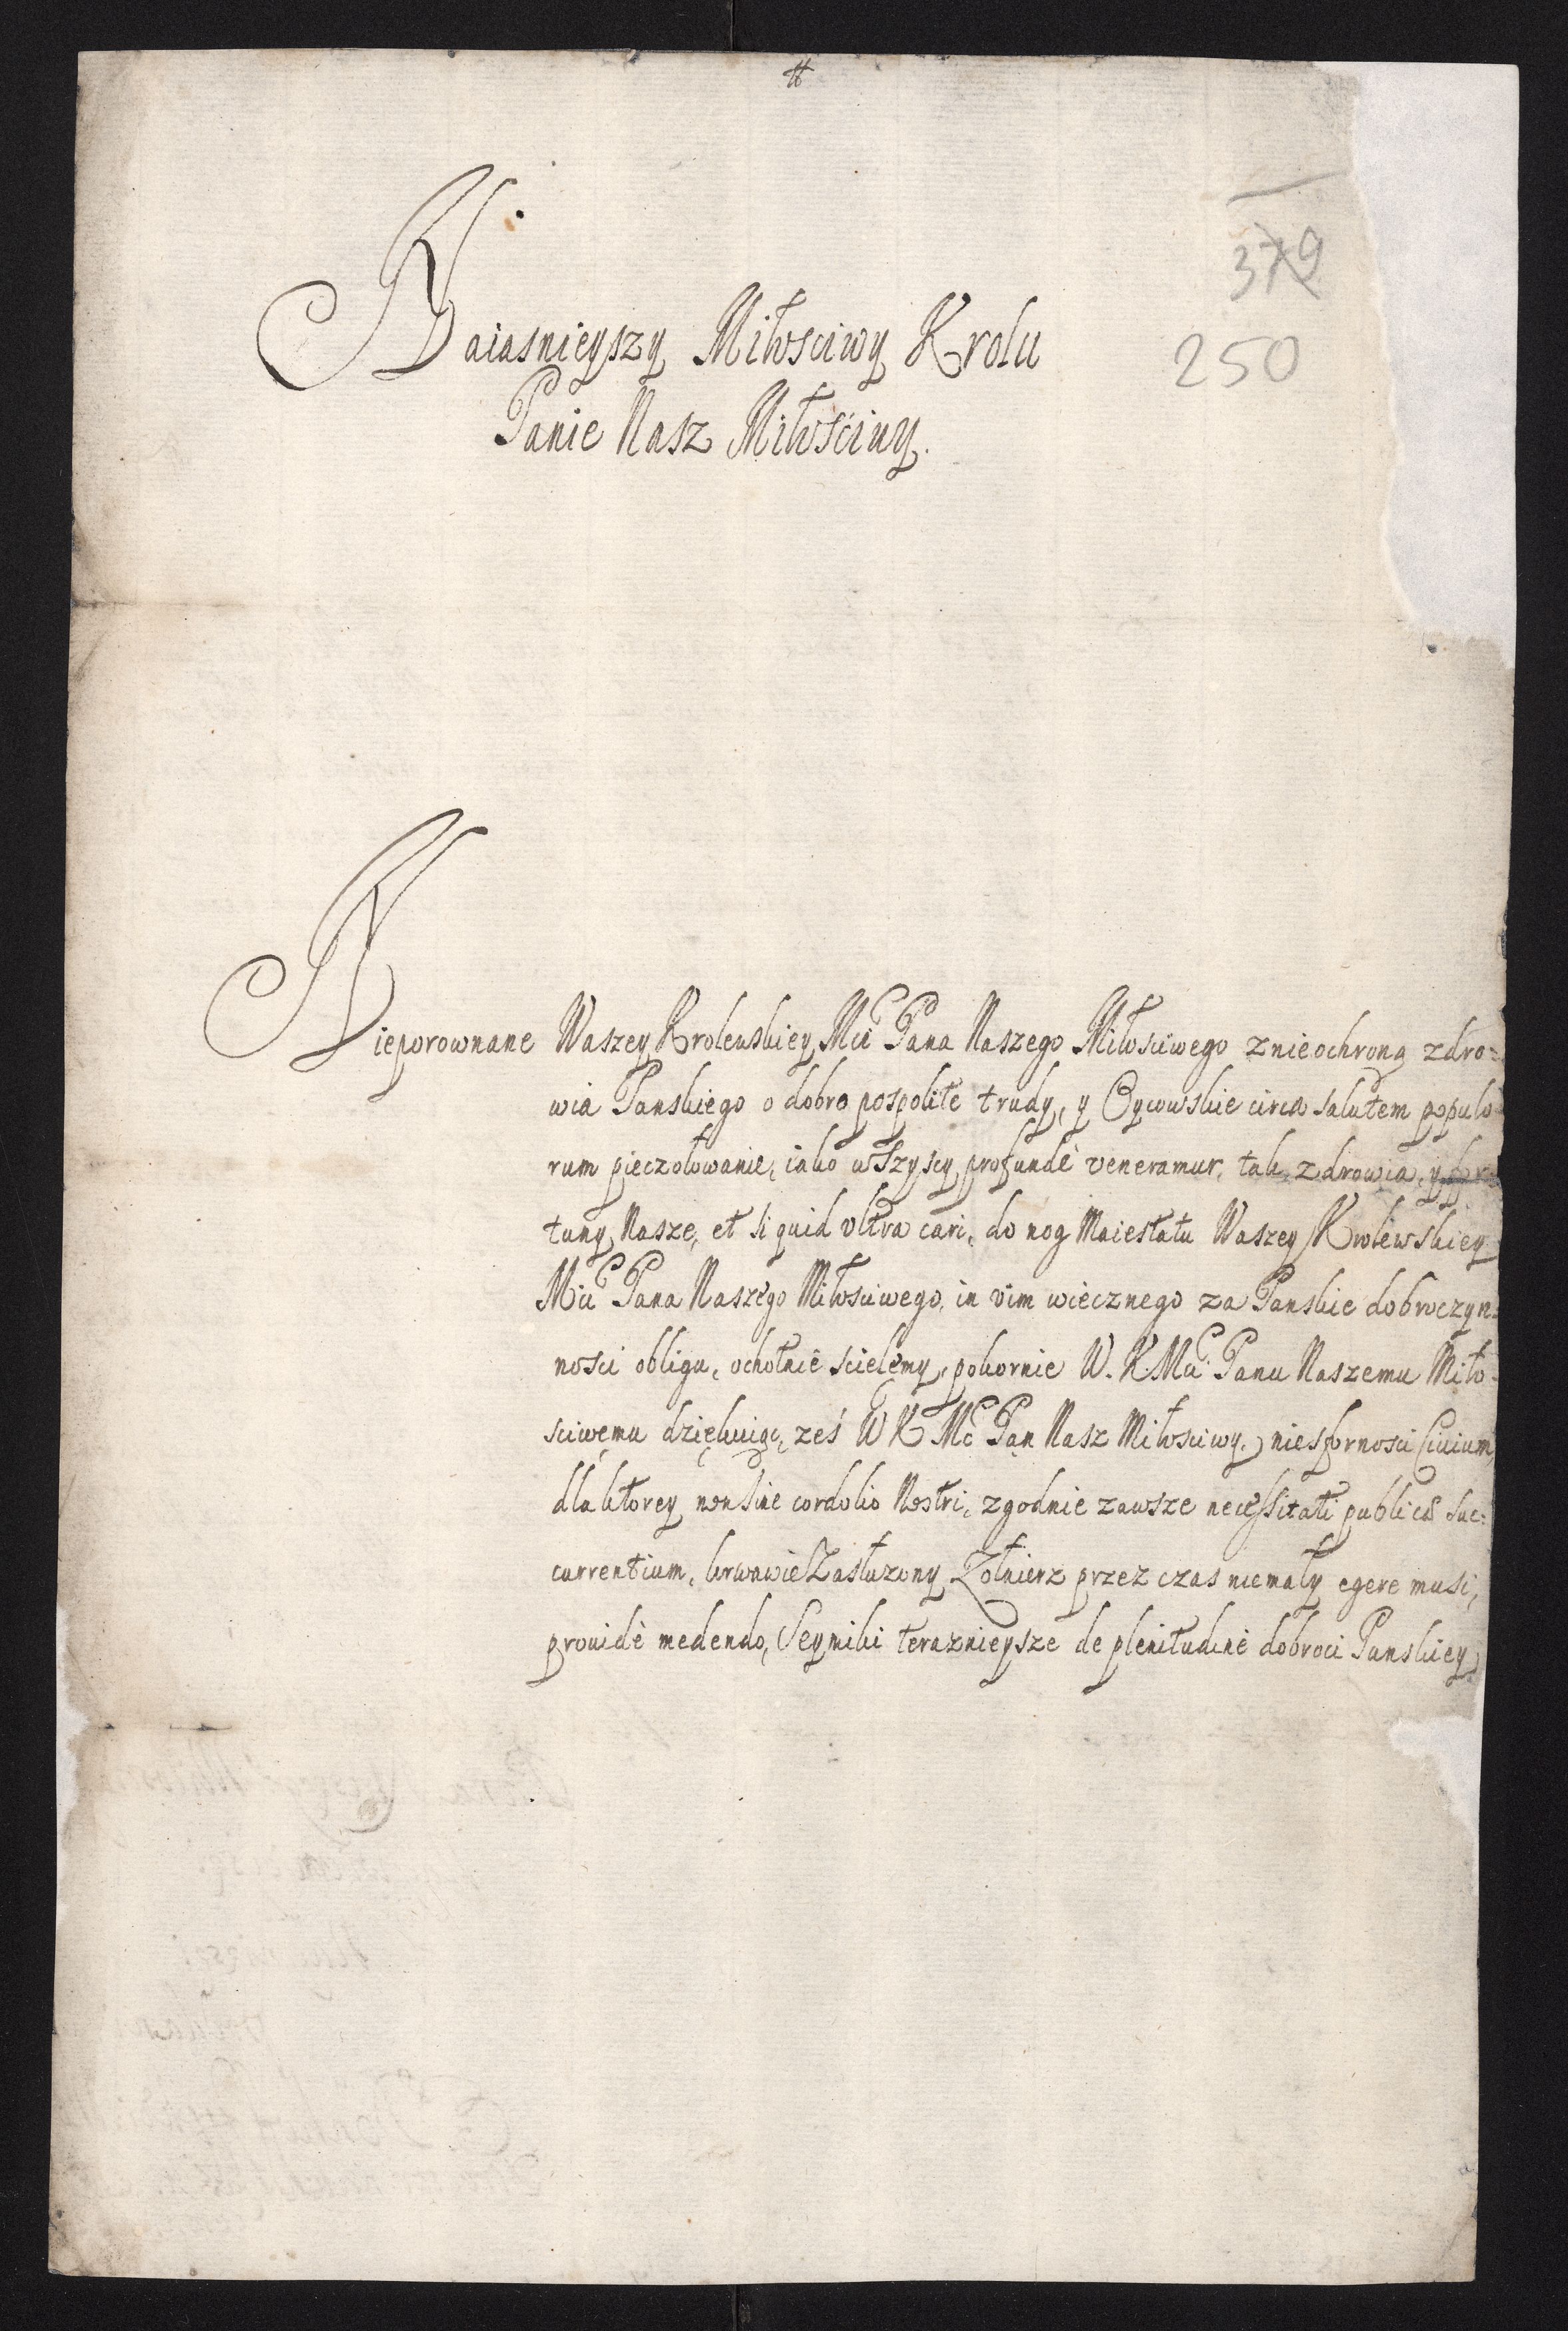 #
379
Naiasnieyszy Miłosciwy Krolu
250
Panie Nasz Miłośćiwy.
Nieporownane Waszey Krolewskiey Mci Pana Naszego Miłosciwego z nieochroną zdro=
wia Panskiego o dobro pospolite trudy, y Oycowskie circa salutem populo=
rum pieczołowanie, iako wszyscy profundè veneramur, tak zdrowia, y for=
tuny Nasze, et si quid vltra cari, do nog Maiestatu Waszey Krolewskiey
Mci Pana Naszego Miłosciwego, in vim wiecznego za Panskie dobroczyn=
nosci obligu, ochotnie scielemy, pokornie W. K. Mci Panu Naszemu Miło=
sciwemu dziękuiąc, ześ W K Mć Pan Nasz Miłosciwy, niesfornosci Ciuium,
dla ktorey non sine cordolio Nostri, zgodnie zawsze necessitati publicæ suc=
currentium, krwawie Zasłuzony Zołnierz przez czas niemały egere musi,
prouidè medendo, Seymiki teraznieysze de plenitudine dobroci Panskiey